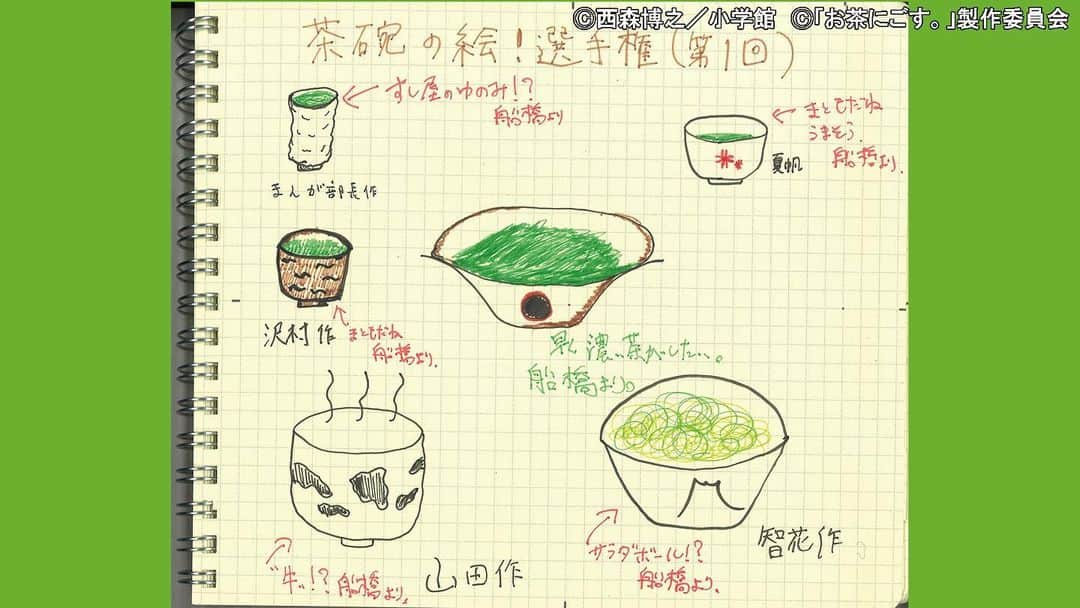 ©西森博之／小学館　©「お茶にごす。」製作委員会
茶碗の絵！選手権（第1回）
すし屋のゆのみ!?
船橋より
まんが部長作
まともだね
うまそう。
船橋より.
夏帆
沢村作
まともだね
船橋より.
早く濃い茶がしたい。
船橋より。
"牛"!?船橋より.
山田作
サラダボール!?
船橋より.
智花作